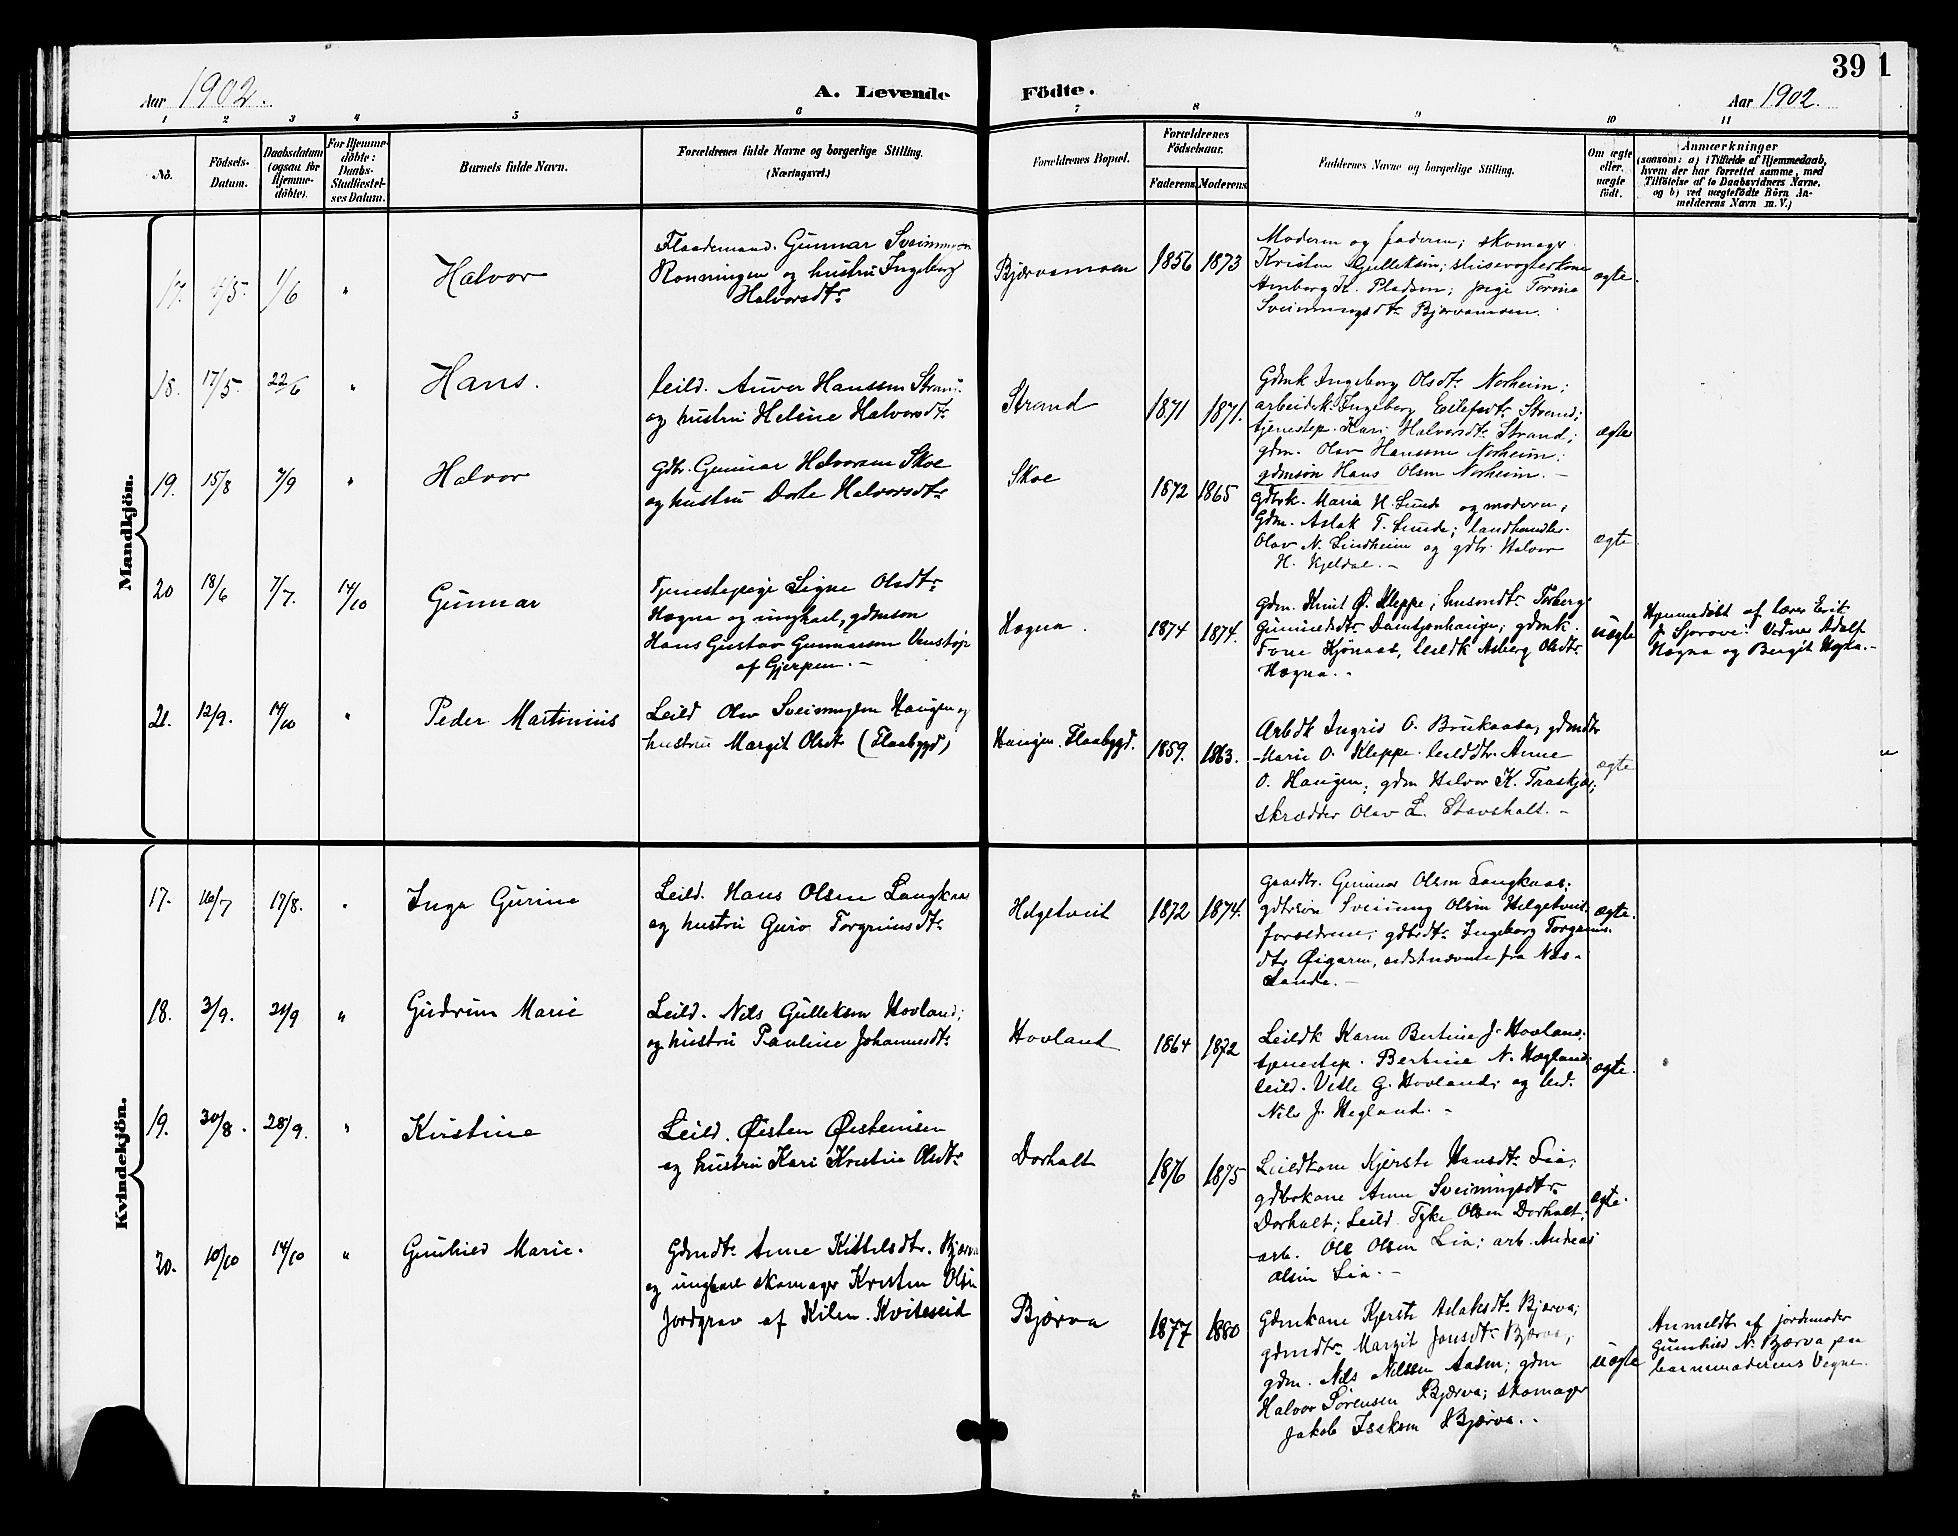 39 1
Aar 1902.
A. Levende Födte.
Aar 1902.
1 2 3 4 5 6 7 8 9 10 11
No.
Födsels-
Datum.
Daabsdatum
(ogsaa for
Hjemme-
döbte).
For Hjemme-
döbte:
Daabs-
Stadfæstel-
ses Datum.
Barnets fulde Navn.
Forældrenes fulde Navne og borgerlige Stilling.
(Næringsvei.)
Forældrenes Bopæl.
Forældrenes
Födselsaar.
Faderens Moderens
Faddernes Navne og borgerlige Stilling.
Om ægte
eller
uægte
födt.
Anmærkninger
(saasom: a) i Tilfælde af Hjemmedaab,
hvem der har forrettet samme, med
Tilföielse af to Daabsvidners Navne,
og b) ved uægtefödte Börn An-
melderens Navn m. V.)
Mandkjön.
17. 4/5. 1/6 " Halvor
Flaademand. Gunnar
Rönningen og hustru Ingeborg
Halvorsdtr
Bjærvamoen 1856 1873
Moderen og faderen; skomager
Kristen Gulleksen;
Arnberg K. Pladsen; pige Torine
Sveinungsdtr Bjervamoen.
ægte.
18. 17/5. 22/6 " Hans.
Leild. Anver Hanssen Strand
og hustru Heline Halvorsdtr
Strand 1871 1871.
Gdmk Ingeborg Olsdtr Norheim;
arbeidsk. Ingeborg Eilefsdtr Strand;
tjenestep. Kari Halvorsdtr Strand;
gdm. Olav Hanssen Norheim;
gdmsön Hans Olsen Norheim. -
ægte
19. 15/8 7/9 " Halvor
Gdbr. Gunnar Halvorsen Skoe
og hustru Dorte Halvorsdtr
Skoe 1872 1865
Gdbrk. Maria H. Lunde og moderen;
Gdm. Aslak T. Lunde; landhandler
Olav N. Lindheim og gdbr. Halvor
H. Kjeldal. -
ægte
20 18/6 7/7. 14/10 Gunnar
Tjenestepige Signe Olsdtr
Hægna og ungkarl, gdmsön
Hans Gustav Gunnarsen Venstöp
af Gjerpen. -
Hægna. 1874 1874.
Gdm. Knut Ø. Kleppe; husmdtr. Torberg
Gunnuldsdtr Damtjonhaugen; gdmk.
Tone Hjönaas, leildk Asberg Olsdtr
Hægna. -
uægte
Hjemmedöbt af lærer Erik
J. Sjorove. Vidner Adolf
Hægna og Bergit Hægna. -
21. 12/9. 14/10 " Peder Martinius
Leild Olav Sveinungsen Haugen og
hustru Margit Olsdtr (Flaabygd)
Haugen. Flaabygd. 1859. 1863.
Arbdk Ingrid O. Brukaasa; gdmdtr
Marie O. Kleppe. leilddtr. Anne
O. Haugen; gdm Halvor K. Traskjær;
skrædder Olav L. Stavshalt. -
ægte
Kvindekjön.
17. 16/7 17/8. " Inga Gurine
Leild. Hans Olsen Langkaas
og hustru Guro Torgrimsdtr
Helgetveit 1872 1874.
Gaardbr. Gunnar Olsen Langkaas;
gdbrsön Sveinung Olsen Helgetveit.
forældrene; gdbrdtr. Ingeborg Torgrims-
dtr Øigarn, sidstnævnte fra Nes-
Lande. -
ægte.
18. 3/9. 21/9 " Gudrun Marie
Leild. Nils Gulleksen Hovland;
og hustru Pauline Johannesdtr
Hovland 1864 1872
Leildk Karen Bertine J. Hovland;
tjenestep. Bertine N. Hægland;
leild. Vetle G. Hovland; og leild.
Nils J. Hegland. -
ægte.
19. 30/8. 28/9. " Kirstine
Leild. Øisten Øistensen
og hustru Kari Kristine Olsdtr
Dorholt 1876 1875
Leildkone Kjerste Hansdtr Lia;
gdbrkone Anne Sveinungsdtr.
Dorholt; Leild. Tyke Olsen Dorholt;
arb. Ole Olsen Lia; arb. Andreas
Olsen Lia. -
ægte.
20. 10/10 14/10 " Gunhild Marie.
Gdmdtr Anne Kittelsdtr. Bjærva
og ungkarl skomager Kristen Olsen
Jordgrav af Kilen. Kviteseid
Bjærva 1877 1880
Gdmkone Kjerste Aslaksdtr Bjærva;
gdmdtr. Margit Jonsdtr Bjærva;
gdm. Nils Nilssen Aasen; gdm
Halvor Sörensen Bjærva; skomager
Jakob Isaksen Bjærva. -
uægte
Anmeldt af jordmoder
Gunhild N. Bjærva paa
barnmoderens Vegne.